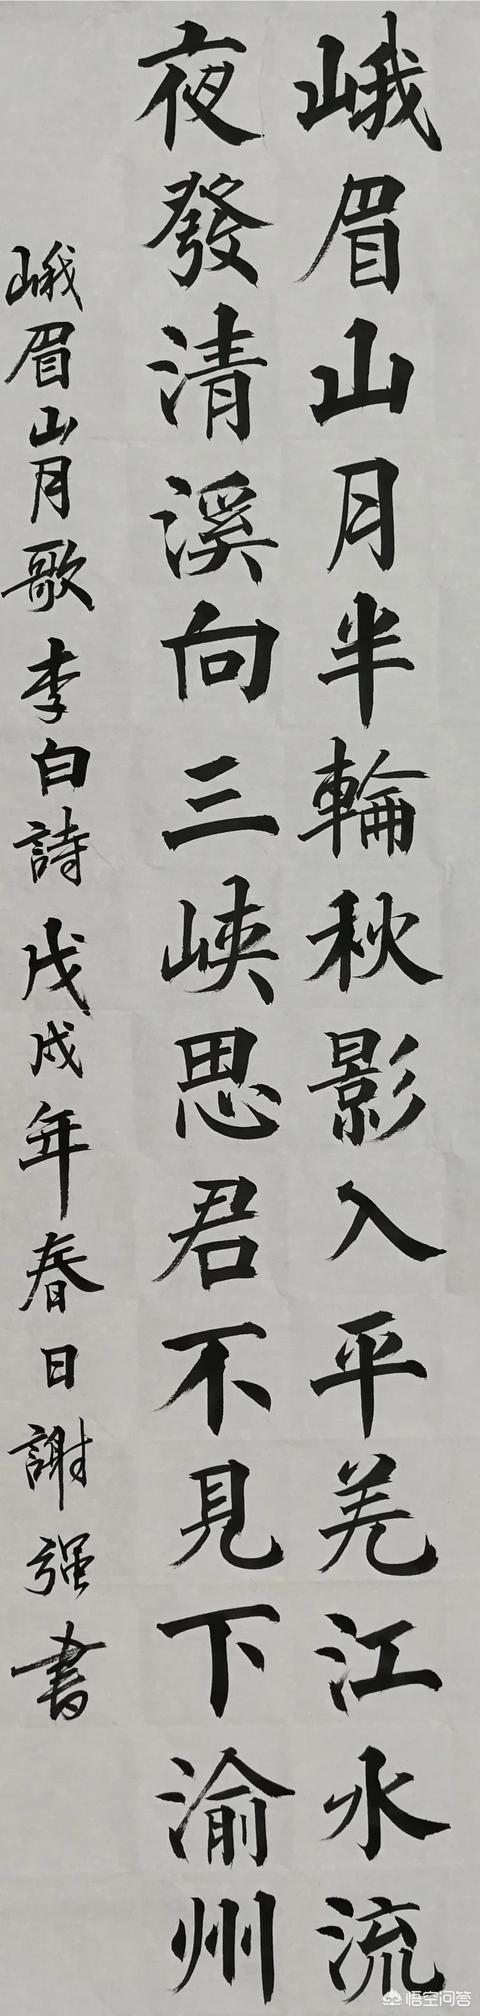 峨眉山月半輪秋影入平羌江水流
夜發清溪向三峽思君不見下渝州
峨眉山月歌李白詩戊戌年春日謝强書
悟空问答